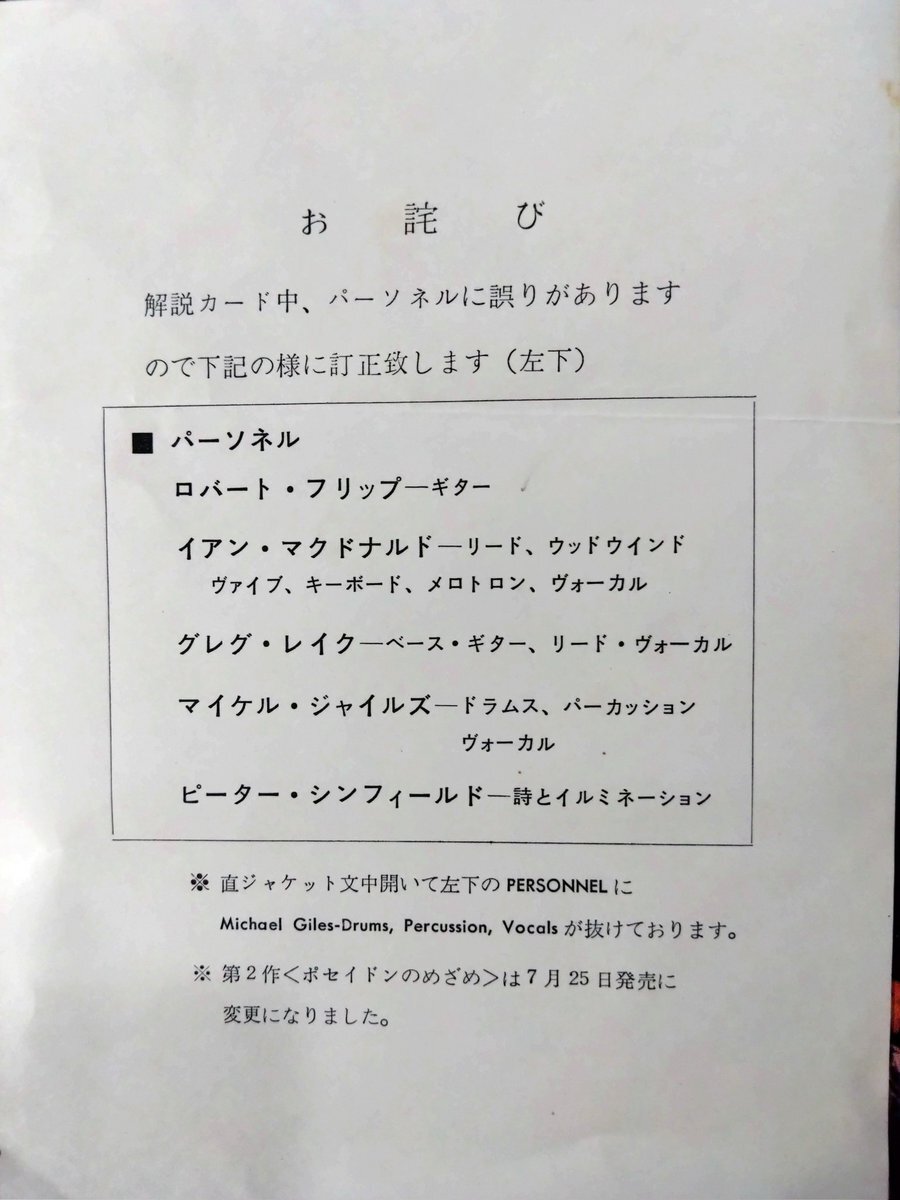 お詫び
解説カード中、パーソネルに誤りがあります
ので下記の様に訂正致します(左下)
■ パーソネル
ロバート・フリップ―ギター
イアン・マクドナルド―リード、ウッドウインド
ヴァイブ、キーボード、メロトロン、ヴォーカル
グレグ・レイク―ベース・ギター、リード・ヴォーカル
マイケル・ジャイルズ―ドラムス、パーカッション
ヴォーカル
ピーター・シンフィールド―詩とイルミネーション
※ 直ジャケット文中開いて左下の PERSONNEL に
Michael Giles-Drums, Percussion, Vocals が抜けております。
※ 第2作<ポセイドンのめざめ>は7月25日発売に
変更になりました。